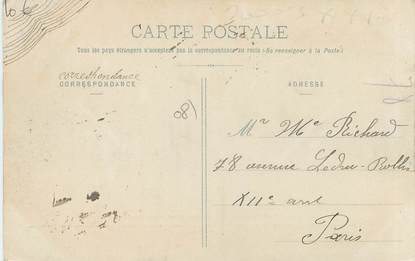 CARTE POSTALE
Tous les pays étrangers n'acceptent pas la correspondance au recto (Se renseigner à la Poste)
correspondance
CORRESPONDANCE
ADRESSE
(80)
Mr Mce Richard
78 avenue Ledru-Rollin
XIIe arrt
Paris